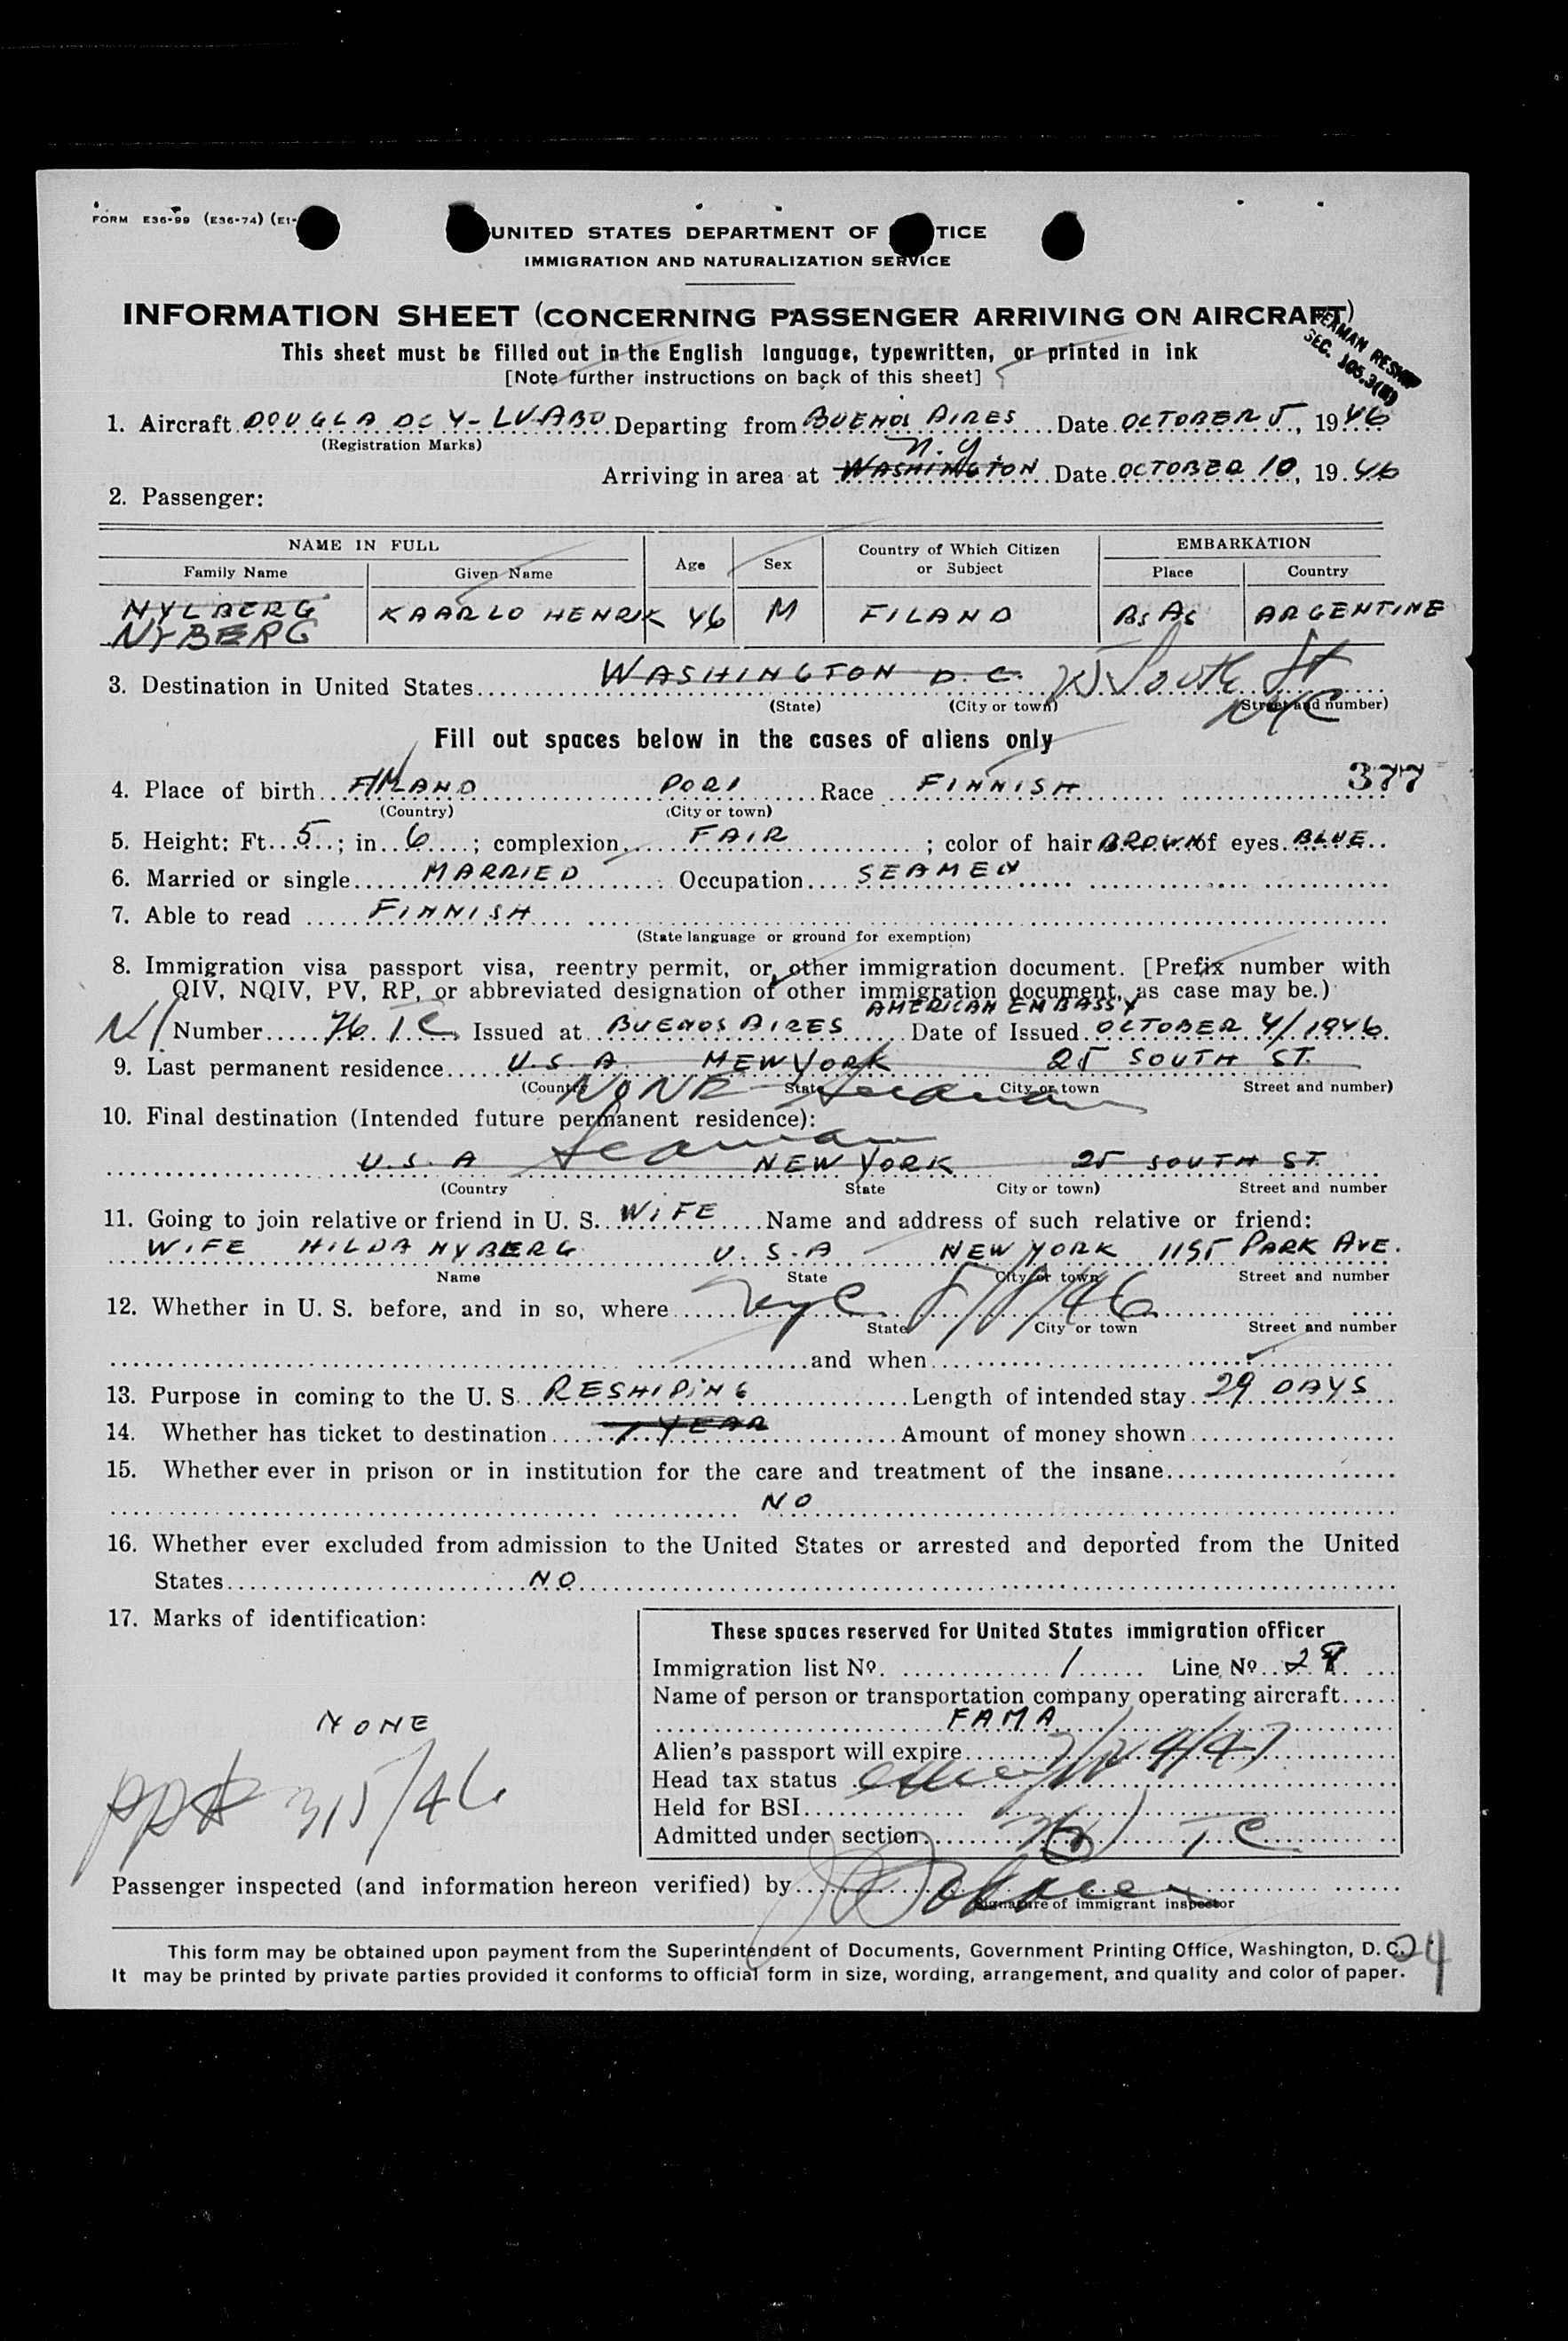 FORM E36-99 (E36-74) (E1-
UNITED STATES DEPARTMENT OF TICE
IMMIGRATION AND NATURALIZATION SERVICE
INFORMATION SHEET (CONCERNING PASSENGER ARRIVING ON AIRCRAFT)
SEAMAN RESHIP
SEC. 105.3(B)
This sheet must be filled out in the English language, typewritten, or printed in ink
[Note further instructions on back of this sheet]
1. Aircraft DOUGLA DC 4- LV-ABO Departing from BUENOS AIRES Date OCTOBER 5, 1946
(Registration Marks)
N.Y.
Arriving in area at WASHINGTON Date OCTOBER 10, 19 46
2. Passenger:
NAME IN FULL Age Sex Country of Which Citizen or Subject EMBARKATION
Family Name Given Name Place Country
NYLBERG KAARLO HENRIK 46 M FILAND Bs As ARGENTINE
NYBERG
3. Destination in United States WASHINGTON D. C. South St
(State) (City or town) (Street and number)
NYC
Fill out spaces below in the cases of aliens only
377
4. Place of birth FINLAND PORI Race FINNISH
(Country) (City or town)
5. Height: Ft. 5; in. 6; complexion FAIR; color of hair BROWN of eyes BLUE
6. Married or single MARRIED Occupation SEAMEN
7. Able to read FINNISH
(State language or ground for exemption)
8. Immigration visa passport visa, reentry permit, or other immigration document. [Prefix number with
QIV, NQIV, PV, RP, or abbreviated designation of other immigration document, as case may be.)
AMERICAN EMBASSY
Number 76 TC Issued at BUENOS AIRES Date of Issued OCTOBER 4/1946
9. Last permanent residence U.S.A NEW YORK 25 SOUTH ST.
(Country State City or town Street and number)
NONE - Seaman
10. Final destination (Intended future permanent residence):
Seaman
U.S.A NEW YORK 25 SOUTH ST.
(Country State City or town) Street and number
11. Going to join relative or friend in U. S. WIFE Name and address of such relative or friend:
WIFE HILDA NYBERG U.S.A - NEW YORK 1195 PARK AVE.
Name State City or town Street and number
12. Whether in U. S. before, and in so, where NYC 8/8/46
State City or town Street and number
and when
13. Purpose in coming to the U. S. RESHIPING Length of intended stay 29 DAYS
14. Whether has ticket to destination 1 YEAR Amount of money shown
15. Whether ever in prison or in institution for the care and treatment of the insane
NO
16. Whether ever excluded from admission to the United States or arrested and deported from the United
States NO
17. Marks of identification:
NONE
315/46
These spaces reserved for United States immigration officer
Immigration list No. 1 Line No. 28
Name of person or transportation company operating aircraft
FAMA
Alien's passport will expire 7/24/47
Head tax status
Held for BSI
Admitted under section TC
Passenger inspected (and information hereon verified) by
Signature of immigrant inspector
This form may be obtained upon payment from the Superintendent of Documents, Government Printing Office, Washington, D. C.
It may be printed by private parties provided it conforms to official form in size, wording, arrangement, and quality and color of paper.
24